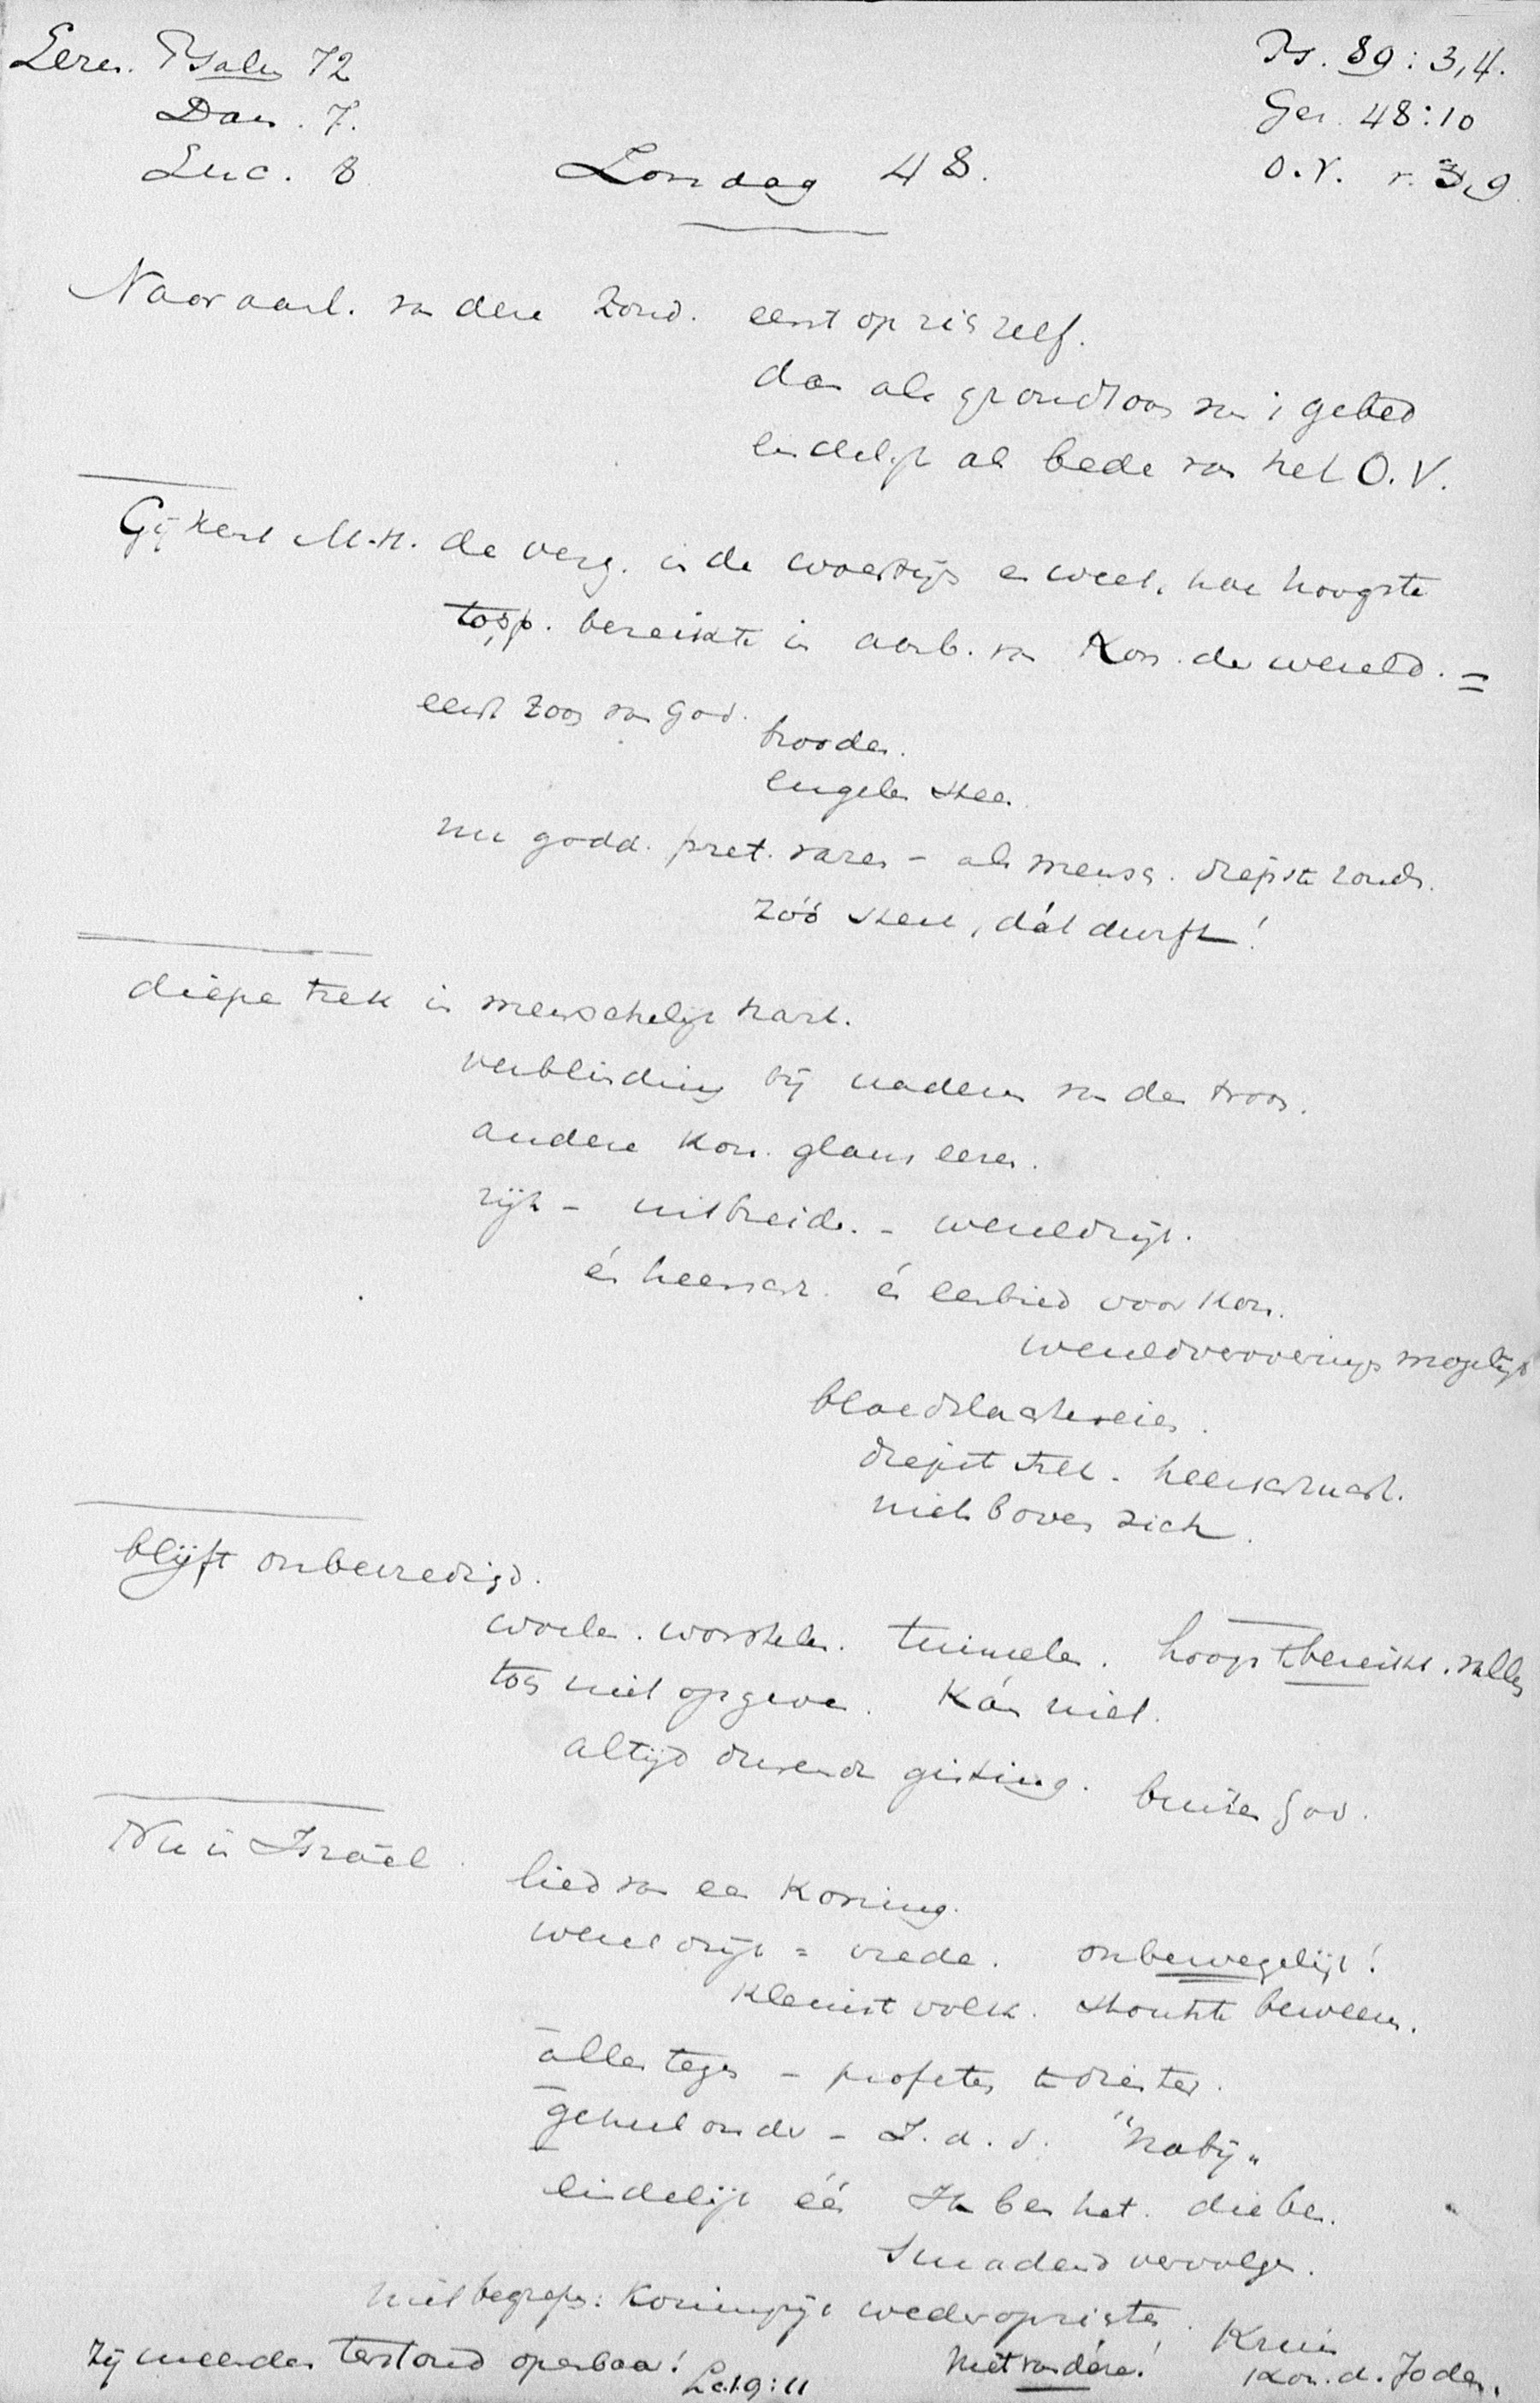 Lezen. Psalm 72
Dan. 7.
Luc. 8
Ps. 89 : 3,4.
Gez. 48 : 10
O.V. v. 3,9
Zondag 48.
Naar aanl. van deze Zond. eerst op zich zelf.
dan als grondtoon van 't gebed
eindelijk als bede van het O.V.
Gij kent M.H. de verz. in de woestijn en weet, hoe hoogste
topp. bereikte in aanb. van Kon. der wereld. =
eerst Zoon van God.
brooden.
engelen
nu godd. pret. varen - als mensch. diepste zonde.
zóó sterk, dát durft!
diepe trek in menschelijk hart.
verblinding bij naderen van den troon.
andere Kon. glans eeren.
rijk - uitbreid. - wereldrijk.
én heersch. én eerbied voor Kon.
wereldveroverings mogelijk
bloedslachterijen.
diepst trek. heerschzucht.
niets boven zich.
blijft onbevredigd.
woelen. worstelen. tuimelen. hoogst bereikt. vallen
toch niet opgeven. Kán niet.
altijd durende gisting. buiten God.
Nu in Israël.
lied van een Koning.
wereldrijk = vrede. onbewegelijk!
kleinst volk. stoutste beweren.
allen tegen - profeten te driester.
geheel onder - J.d.D. "Nabij"
eindelijk één Ik ben het. die ben.
Smadend vervolgen.
niet begrepen: Koninkrijk wederoprichten.
Kruis
Zij meenden terstond openbaar! Lc. 19 : 11
Niet van deze!
Kon. d. Joden.